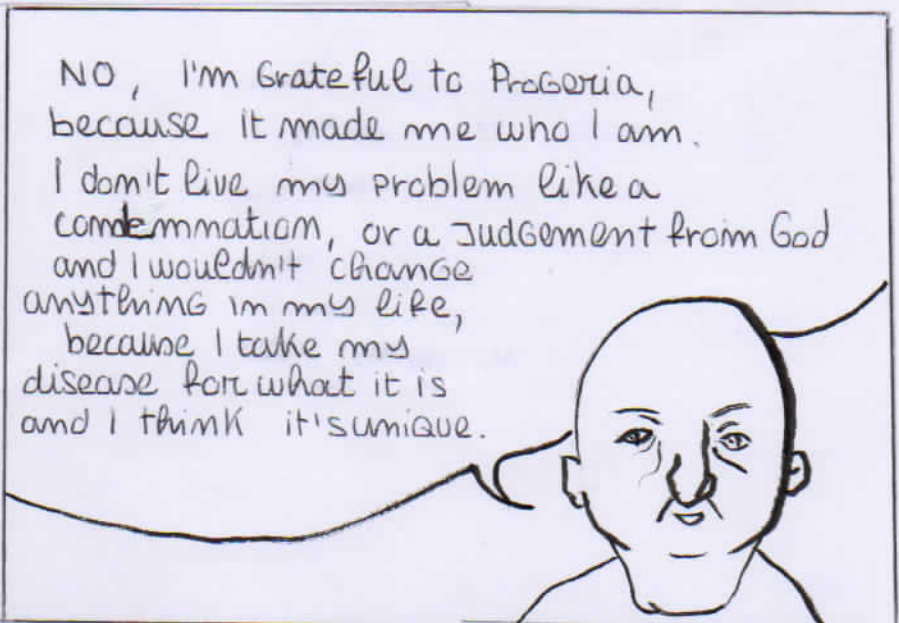 NO, I'm Grateful to ProGeria,
because it made me who I am.
I don't live my problem like a
condemnation, or a JudGement from God
and I wouldn't chanGe
anythinG in my life,
because I take my
disease for what it is
and I think it's uniQue.